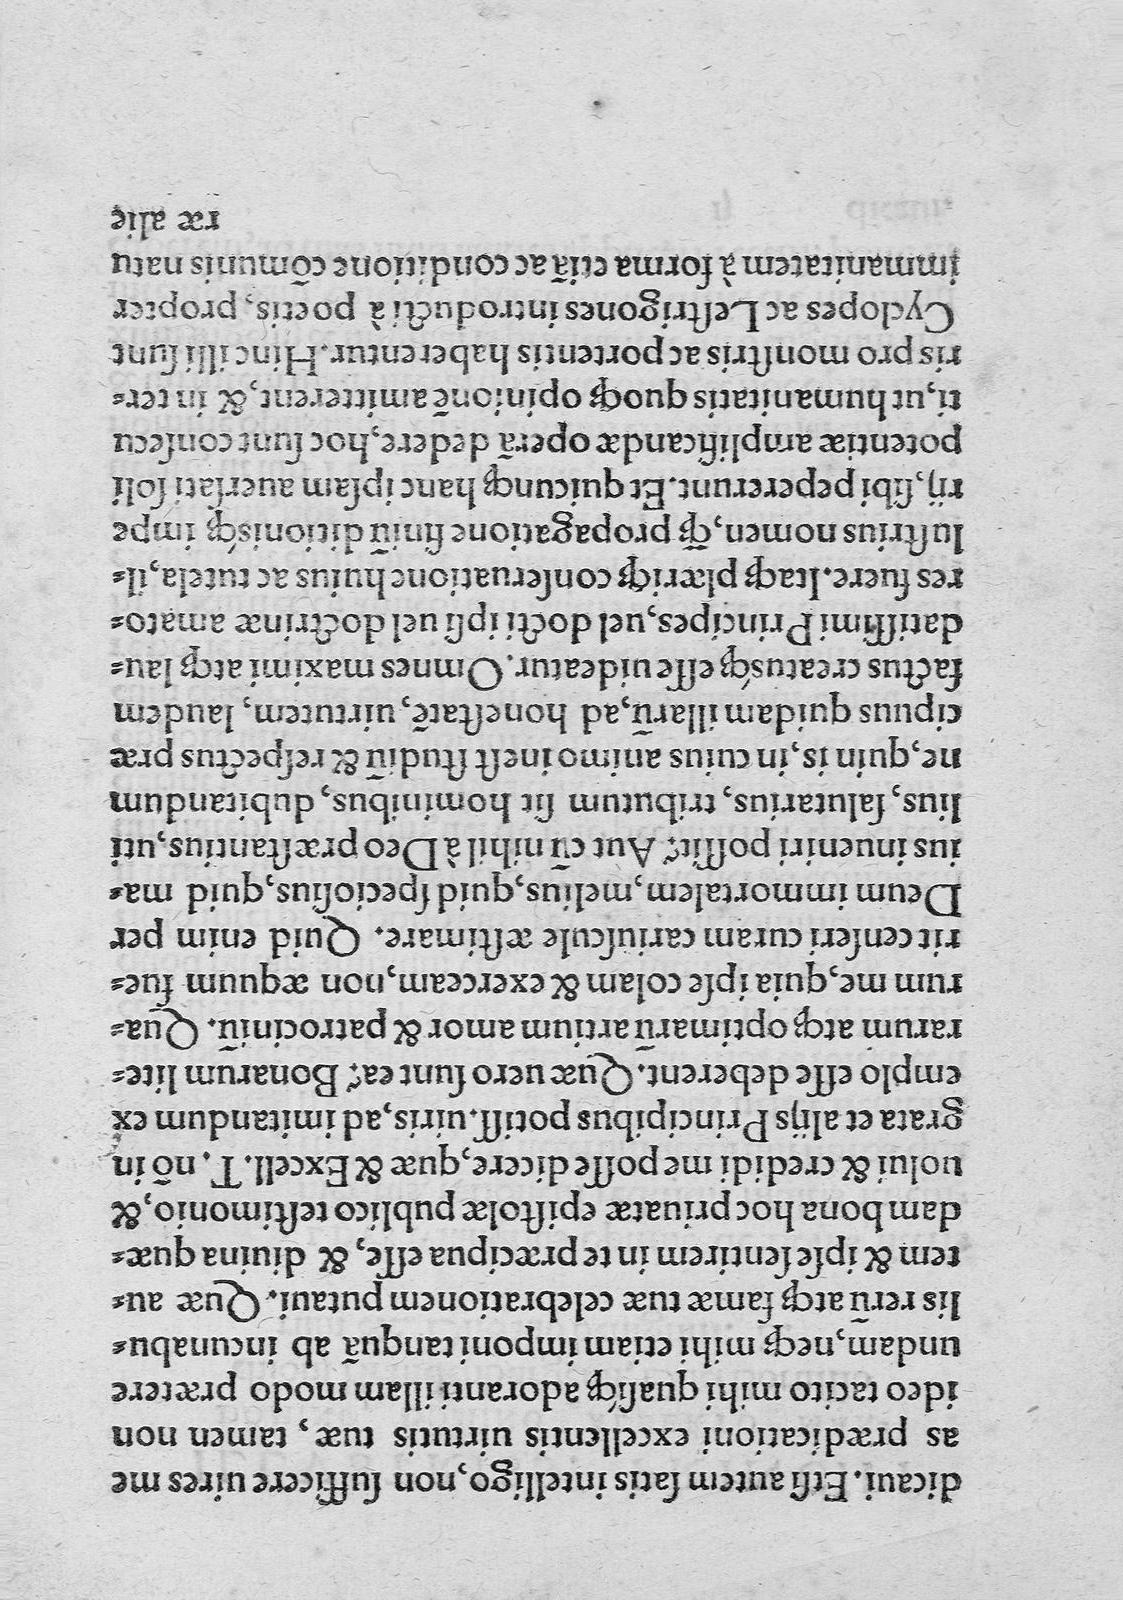 dicaui. Etſi autem ſatis intelligo, non ſufficere uires me
as prædicationi excellentis uirtutis tuæ, tamen non
ideo tacito mihi quaſiq́ꝫ adoranti illam modo prætere
undam, neqꝫ mihi etiam imponi tanquã ab incunabu⸗
lis rerũ atqꝫ famæ tuæ celebrationem putaui. Quæ au⸗
tem & ipſe ſentirem in te præcipua eſſe, & diuina quæ⸗
dam bona hoc priuatæ epiſtolæ publico teſtimonio, &
uolui & credidi me poſſe dicere, quæ & Excell. T. nõ in
grata et alijs Principibus potiſſ. uiris, ad imitandum ex
emplo eſſe deberent. Quæ uero ſunt ea? Bonarum lite⸗
rarum atqꝫ optimarũ artium amor & patrociniũ. Qua⸗
rum me, quia ipſe colam & exerceam, non æquum fue⸗
rit cenſeri curam cariuſcule æſtimare. Quid enim per
Deum immortalem, melius, quid ſpecioſius, quid ma⸗
ius inueniri poſſit? Aut cũ nihil à Deo præſtantius, uti
lius, ſalutarius, tributum ſit hominibus, dubitandum
ne, quin is, in cuius animo ineſt ſtudiũ & reſpectus præ
cipuus quidam illarũ, ad honeſtatẽ, uirtutem, laudem
factus creatusq́ꝫ eſſe uideatur. Omnes maximi atqꝫ lau⸗
datiſſimi Principes, uel docti ipſi uel doctrinæ amato⸗
res fuere. Itaqꝫ plæriqꝫ conſeruatione huius ac tutela, il⸗
luſtrius nomen, q̃ꝫ propagatione finiũ ditionisq́ꝫ impe
rij, ſibi pepererunt. Et quicunqꝫ hanc ipſam auerſati ſoli
potentiæ amplificandæ operã dedere, hoc ſunt conſecu
ti, ut humanitatis quoqꝫ opinionẽ amitterent, & in ter⸗
ris pro monſtris ac portentis haberentur. Hinc illi ſunt
Cyclopes ac Leſtrigones introducti à poetis, propter
immanitatem à forma etiã ac conditione cõmunis natu
ræ alie